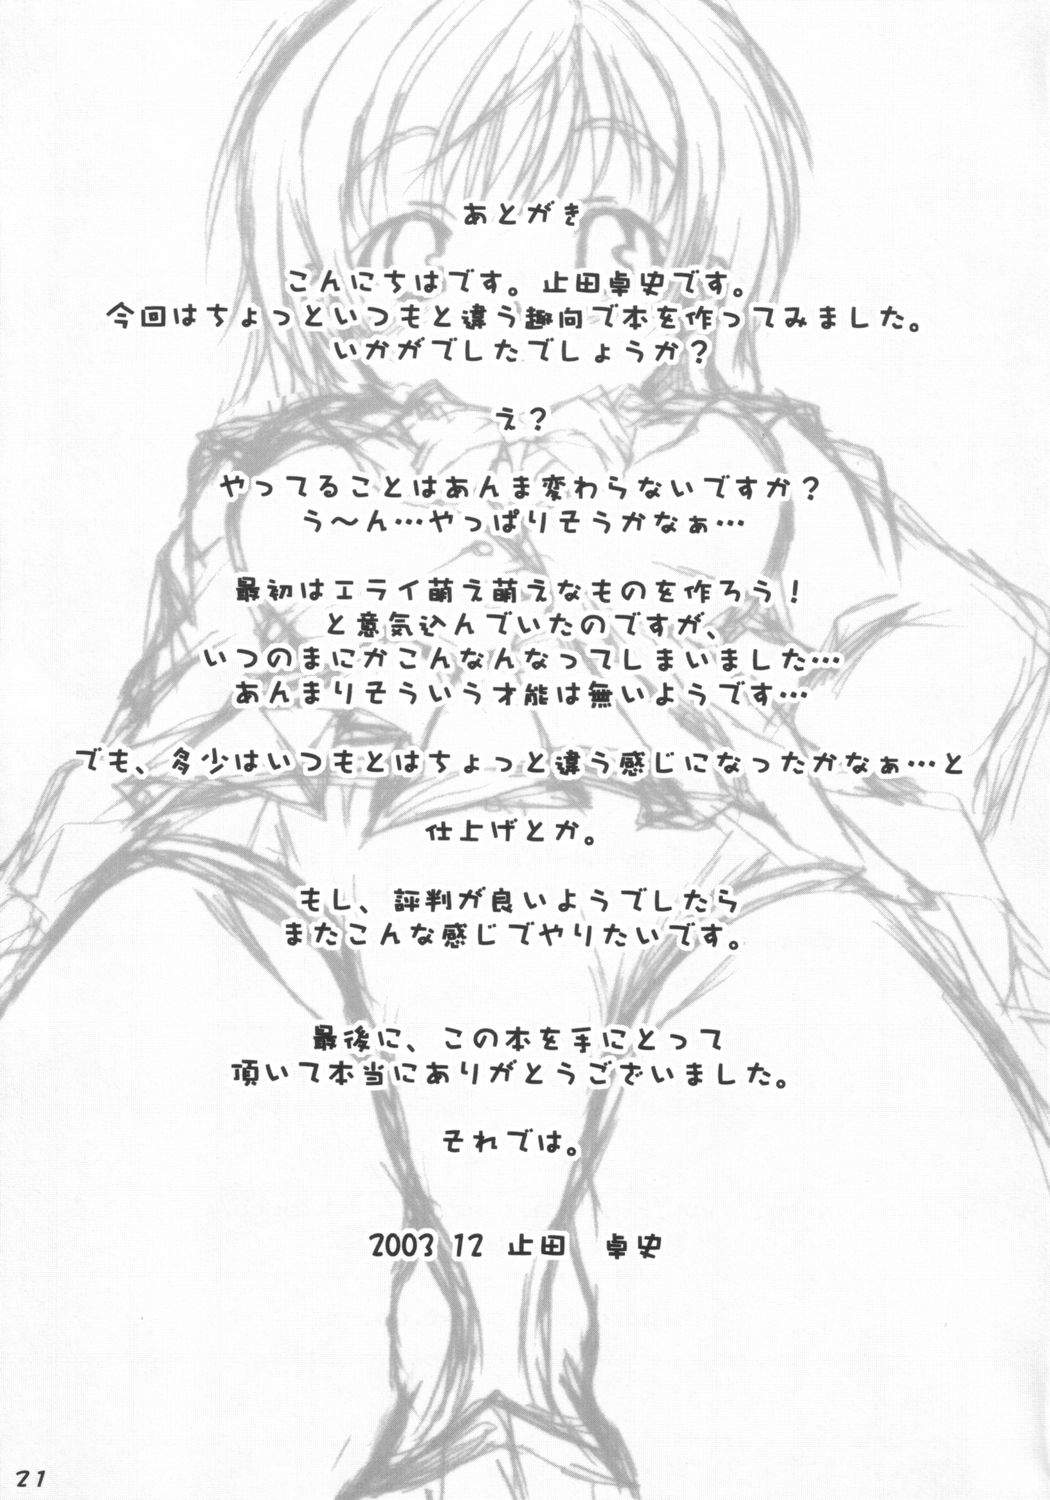 あとがき
こんにちはです。止田卓史です。
今回はちょっといつもと違う趣向で本を作ってみました。
いかがでしたでしょうか？
え？
やってることはあんま変わらないですか？
う～ん…やっぱりそうかなぁ…
最初はエライ萌え萌えなものを作ろう！
と意気込んでいたのですが、
いつのまにかこんなんなってしまいました…
あんまりそういう才能は無いようです…
でも、多少はいつもとはちょっと違う感じになったかなぁ…と
仕上げとか。
もし、評判が良いようでしたら
またこんな感じでやりたいです。
最後に、この本を手にとって
頂いて本当にありがとうございました。
それでは。
2003 12 止田　卓史
21